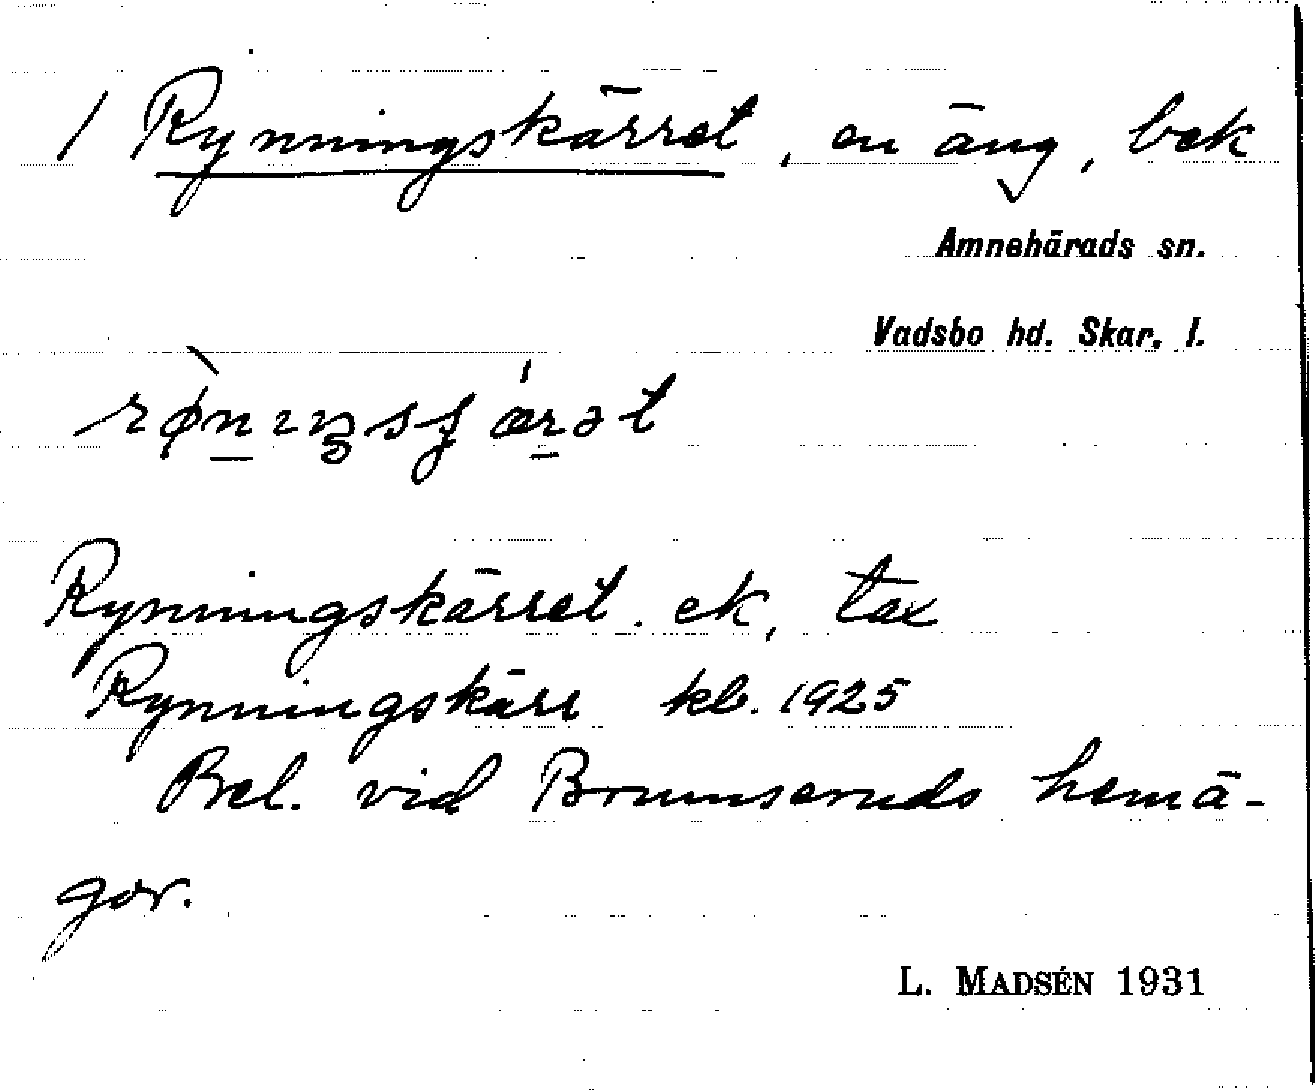 / Rynningskärret, en äng, bek
Amnehärads sn.
Vadsbo hd. Skar. l.
Rynningskärret. ek, tax
Rynningskärr kb. 1925
Bel. vid Brunnseruds hemä-
gor.
L. MADSÉN 1931